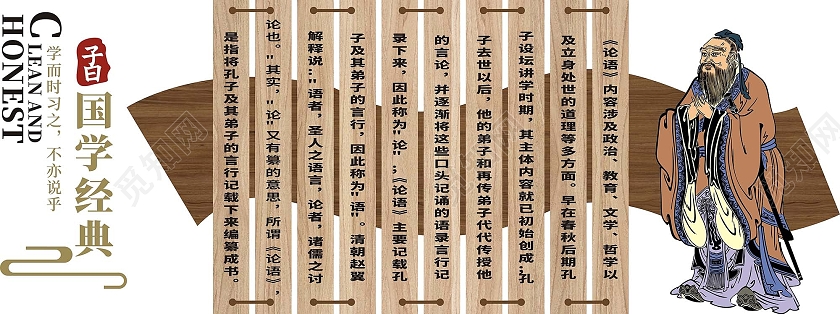 《论语》内容涉及政治、教育、文学、哲学以
及立身处世的道理等多方面。早在春秋后期孔
子设坛讲学时期，其主体内容就已初始创成；孔
子去世以后，他的弟子和再传弟子代代传授他
的言论，并逐渐将这些口头记诵的语录言行记
录下来，因此称为"论"；《论语》主要记载孔
子及其弟子的言行，因此称为"语"。清朝赵翼
解释说："语者，圣人之语言，论者，诸儒之讨
论也。"其实，"论"又有纂的意思，所谓《论语》，
是指将孔子及其弟子的言行记载下来编纂成书。
子曰
国学经典
学而时习之，不亦说乎
CLEAN AND
HONEST
觅知网
觅知网
觅知网